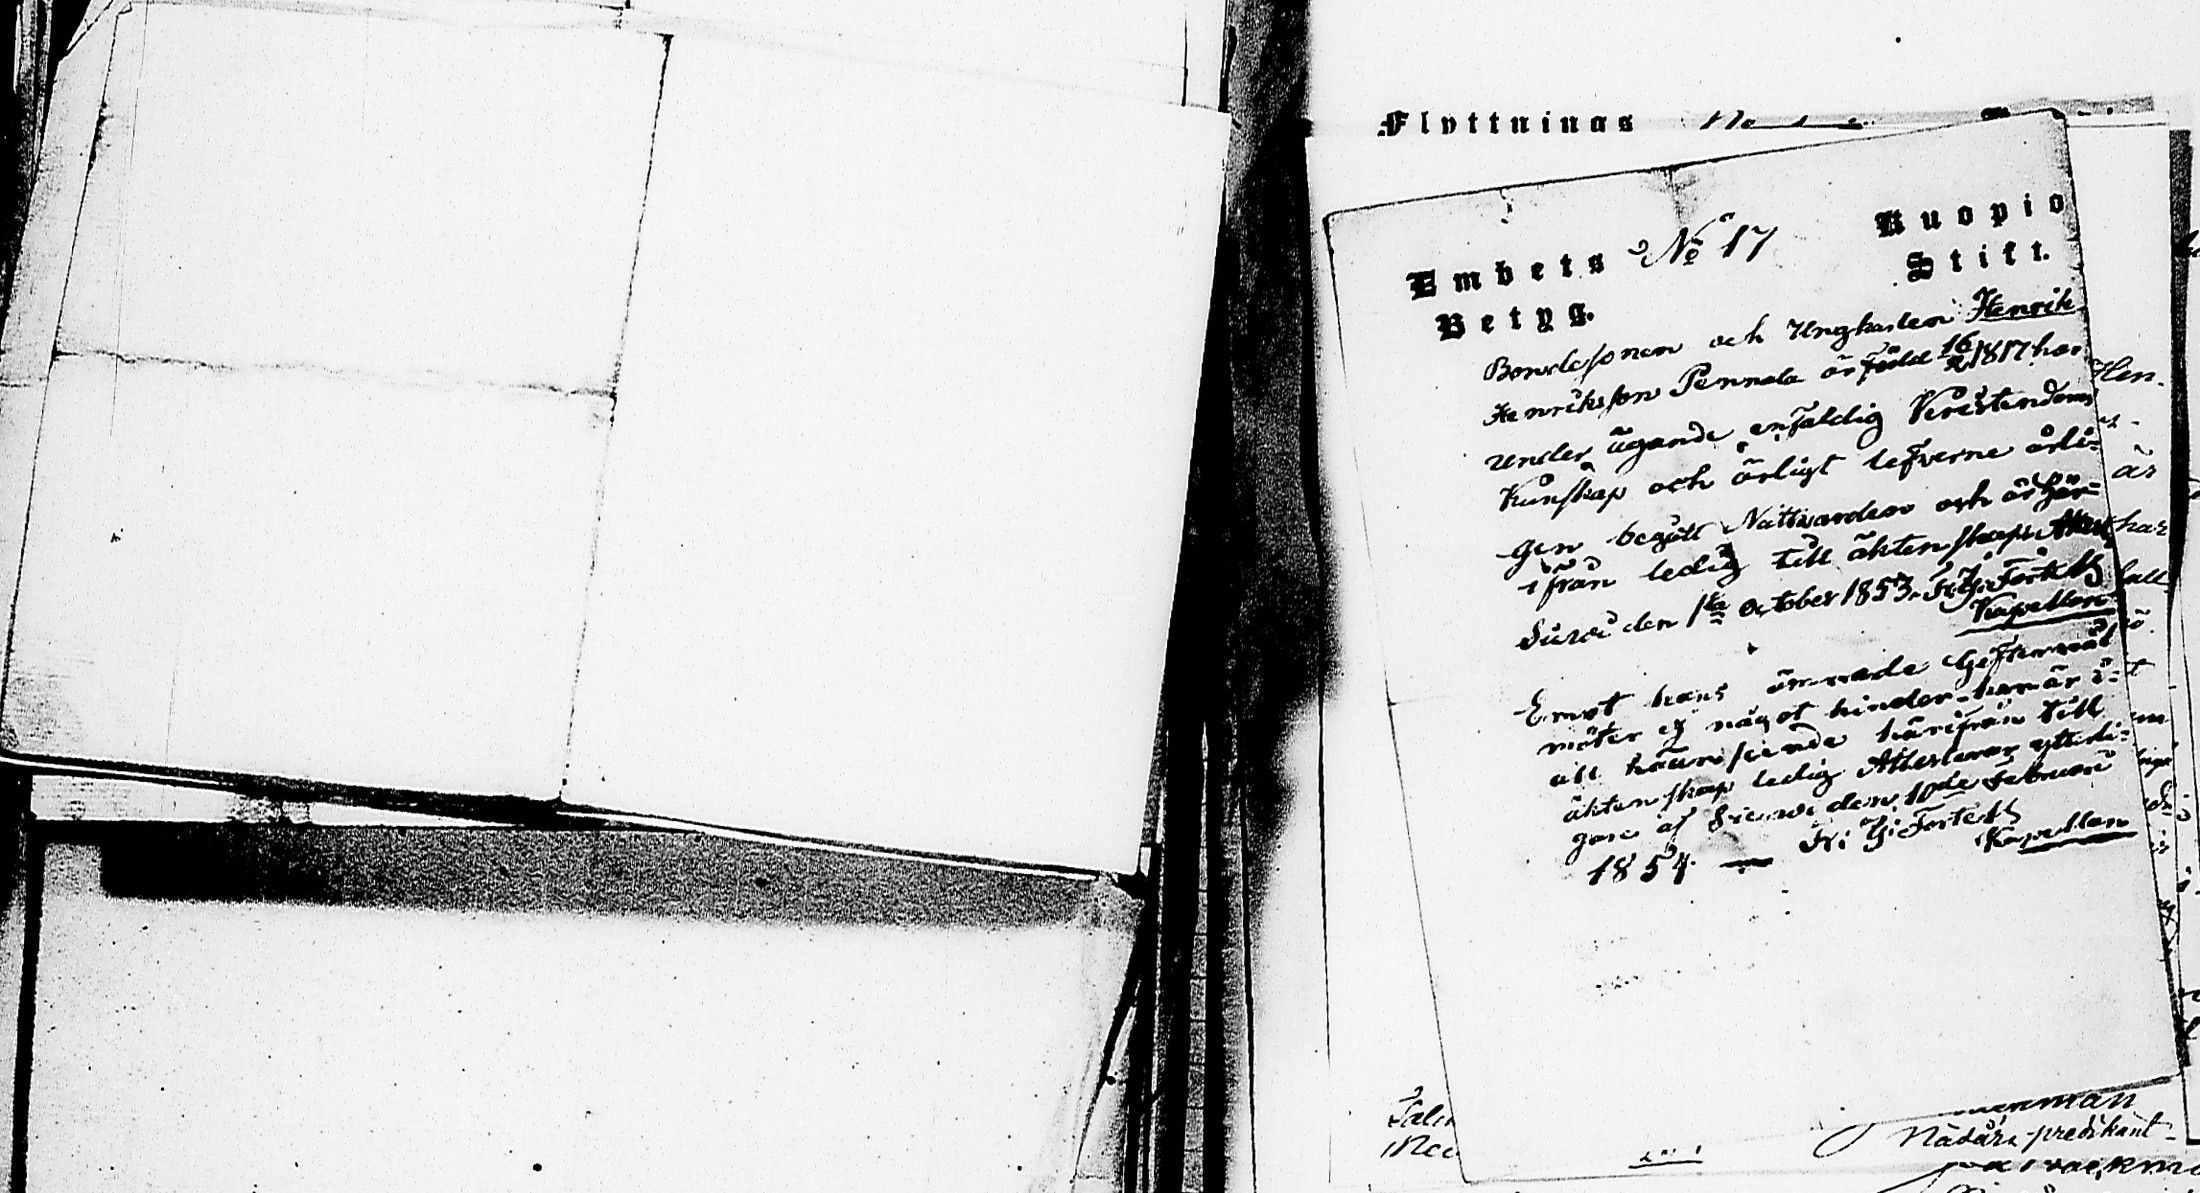 Flyttnings
Embets No 17 Kuopio
Betyg. Stift.
Bondesonen och Ungkarlen Henrik
Henriksson Pennala är född 16/2 1817 har
under ägande enfaldig Kristendoms
Kunskap och ärligt lefverne årli=
gen begått Nattvarden och är här=
ifrån ledig till äktenskap
den 1sta October 1853.
Kapellan
Emot hans ärnade Giftermål
möter ej något hinder han är i
allt hänseende härifrån till
äktenskap ledig Attesteras ytterli=
gare af den 10de Februari
1854.
Kapellan
Hen-
är
har
Nådårs predikant